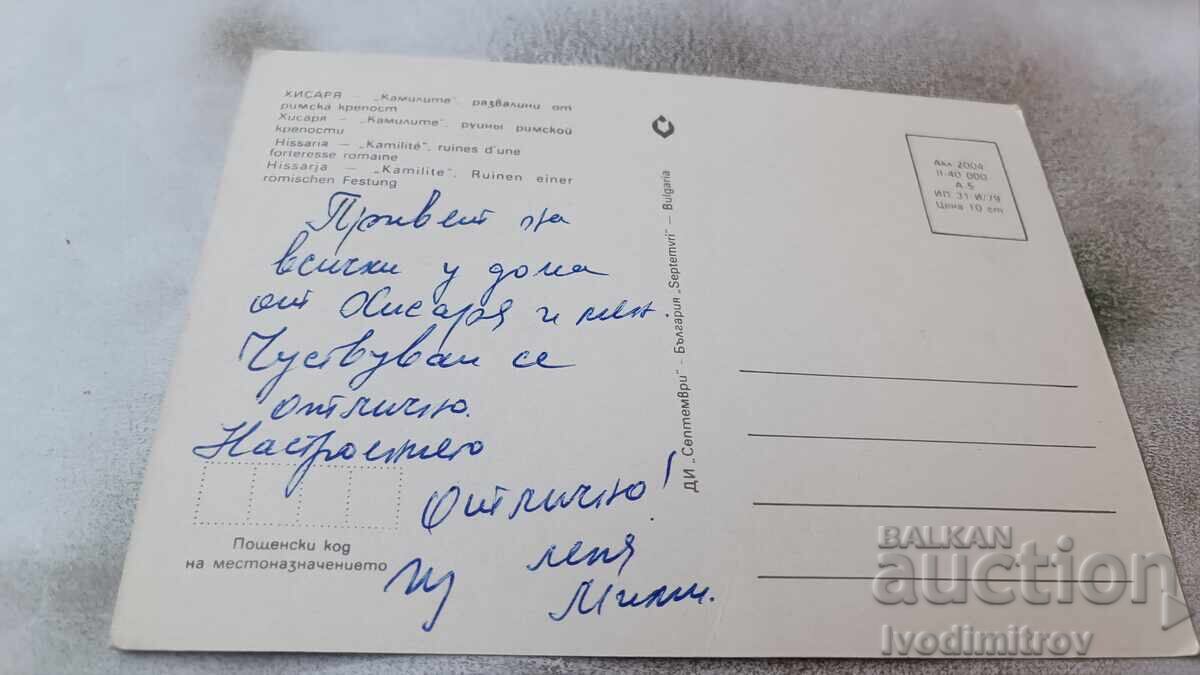 ХИСАРЯ — „Камилите", развалини от
римска крепост
Хисаря — „Камилите", руины римской
крепости
Hissaria — „Kamilité", ruines d'une
forteresse romaine
Hissarja — „Kamilite", Ruinen einer
römischen Festung
Привет на
всички у дома
от Хисаря и мен.
Чуствувам се
отлично.
Настроението
Отлично!
леля
Пощенски код
на местоназначението
ДИ „Септември" - България „Septemvri" — Bulgaria
Акл 2004
II-40 000
А 5
ИП. 31-И/79
Цена 10 ст
BALKAN
auction
Ivodimitrov